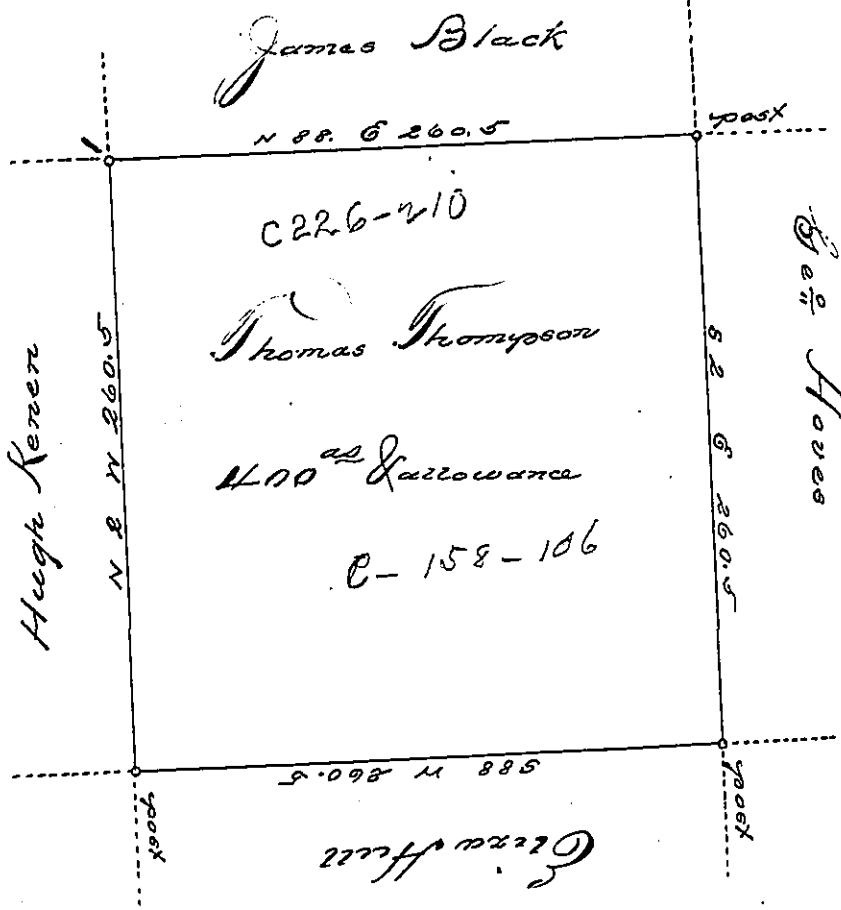 James Black
N 88. E 260.5
post
C226-210
Thomas Thompson
400 as & allowance
C-158-106
Hugh Keren
N 2 W 260.5
S 2 E 260.5
Geo Hoves
S88 W 260.5
post
post
Eliza Hull